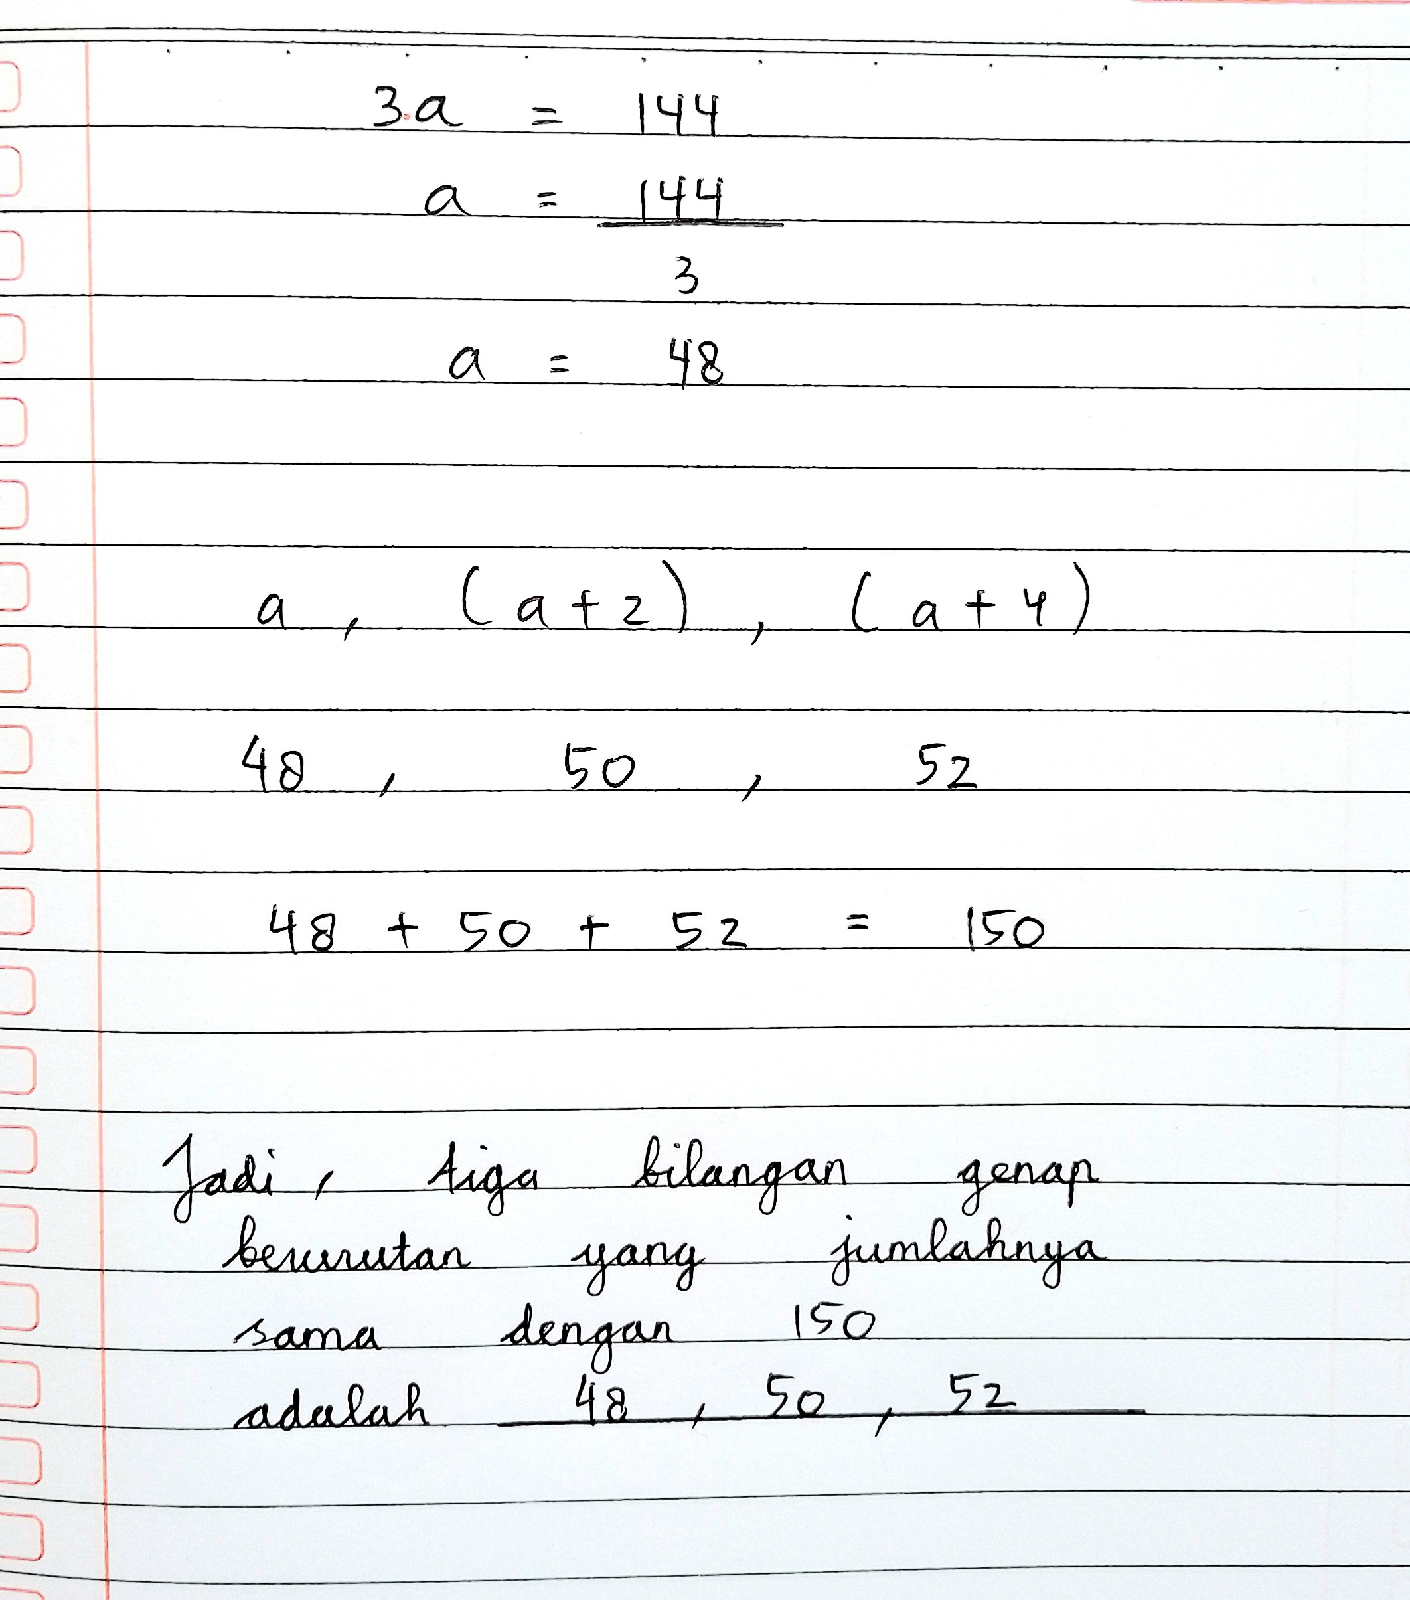 3.a = 144
a = 144
3
a = 48
a , (a+2) , (a+4)
48 , 50 , 52
48 + 50 + 52 = 150
Jadi, tiga bilangan genap
berurutan yang jumlahnya
sama dengan 150
adalah 48 , 50 , 52